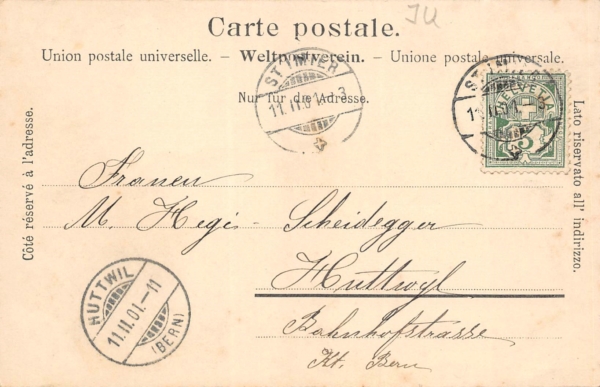 JU
Carte postale.
Union postale universelle. – Weltpostverein. – Unione postale universale.
Nur für die Adresse.
Côté réservé à l'adresse.
Lato riservato all' indirizzo.
ST IMIER
11.II.01.
3
ST IM
HELVETIA
5
Frauen
M. Hegi-Scheidegger
Huttwyl
Bahnhofstrasse
Kt. Bern
HUTTWIL
11.II.01.-11
(BERN)